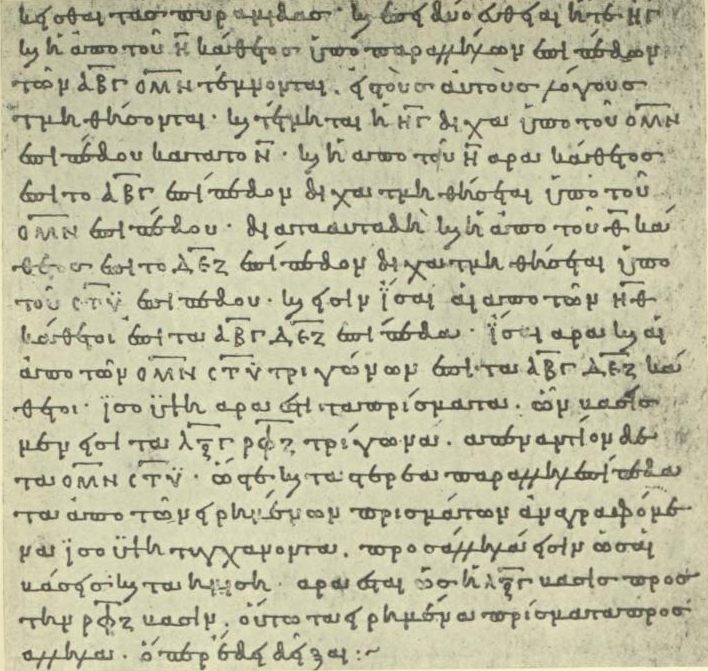 κεῖσθαι τὰς πυραμίδας · καὶ ἐπεὶ δύο εὐθεῖαι ἥ τε ΗΓ
καὶ ἡ ἀπὸ τοῦ Η κάθετος ὑπὸ παραλλήλων ἐπιπέδων
τῶν ΑΒΓ ΟΜΝ τέμνονται, εἰς τοὺς αὐτοὺς λόγους
τμηθήσονται · καὶ τέτμηται ἡ ΗΓ δίχα ὑπὸ τοῦ ΟΜΝ
ἐπιπέδου κατὰ τὸ Ν · καὶ ἡ ἀπὸ τοῦ Η ἄρα κάθετος
ἐπὶ τὸ ΑΒΓ ἐπίπεδον δίχα τμηθήσεται ὑπὸ τοῦ
ΟΜΝ ἐπιπέδου · διὰ τὰ αὐτὰ δὴ καὶ ἡ ἀπὸ τοῦ Θ κά
θετος ἐπὶ τὸ ΔΕΖ ἐπίπεδον δίχα τμηθήσεται ὑπὸ
τοῦ ϹΤΫ ἐπιπέδου · καὶ εἰσὶν ἴσαι αἱ ἀπὸ τῶν Η Θ
κάθετοι ἐπὶ τὰ ΑΒΓ ΔΕΖ ἐπίπεδα · ἴσαι ἄρα καὶ αἱ
ἀπὸ τῶν ΟΜΝ ϹΤΫ τριγώνων ἐπὶ τὰ ΑΒΓ ΔΕΖ κά
θετοι · ἰσοϋψῆ ἄρα ἐστὶ τὰ πρίσματα, ὧν βάσεις
μέν εἰσι τὰ ΛΞΓ ΡΦΖ τρίγωνα, ἀπεναντίον δὲ
τὰ ΟΜΝ ϹΤΫ · ὥστε καὶ τὰ στερεὰ παραλληλεπίπεδα
τὰ ἀπὸ τῶν εἰρημένων πρισμάτων ἀναγραφόμε
να ἰσοϋψῆ τυγχάνοντα, πρὸς ἄλληλά εἰσιν ὡς αἱ
βάσεις καὶ τὰ ἡμίση · ἄρα ἐστὶν ὡς ἡ ΛΞΓ βάσις πρὸς
τὴν ΡΦΖ βάσιν, οὕτω τὰ εἰρημένα πρίσματα πρὸς
ἄλληλα · ὅπερ ἔδει δεῖξαι :~